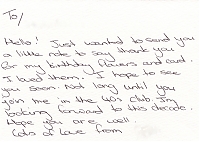 To/
Hello! Just wanted to send you
a little note to say thank you
for my birthday flowers and card.
I loved them. I hope to see
you soon. Not long until you
join me in the 40s club. I'm
looking forward to this decade.
Hope you are well.
Lots of love from